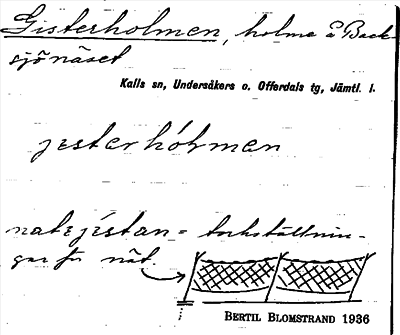 Gisterholmen, holme å Back-
sjönäset
Kalls sn, Undersåkers o. Offerdals tg, Jämtl. l.
jısterhólmen
natejístan = torkställnin-
gar för nät.
BERTIL BLOMSTRAND 1936